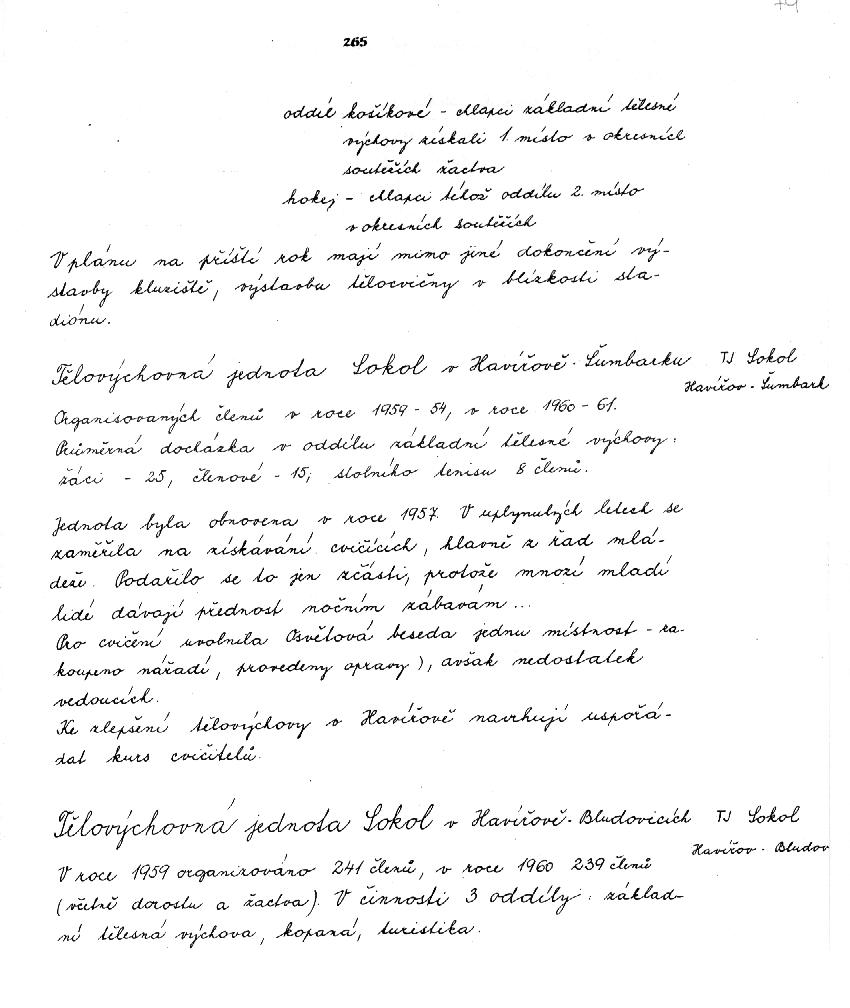 74
265
oddíl košíkové - chlapci základní tělesné
výchovy získali 1. místo v okresních
soutěžích žactva
hokej - chlapci téhož oddílu 2. místo
v okresních soutěžích
V plánu na příští rok mají mimo jiné dokončení vý-
stavby kluziště, výstavbu tělocvičny v blízkosti sta-
diónu.
Tělovýchovná jednota Sokol v Havířově-Šumbarku
TJ Sokol
Havířov-Šumbark
Organisovaných členů v roce 1959 - 54, v roce 1960 - 61.
Průměrná docházka v oddílu základní tělesné výchovy:
žáci - 25, členové - 15, stolního tenisu 8 členů.
Jednota byla obnovena v roce 1957. V uplynulých letech se
zaměřila na získávání cvičících, hlavně z řad mlá-
deže. Podařilo se to jen zčásti, protože mnozí mladí
lidé dávají přednost nočním zábavám...
Pro cvičení uvolnila Osvětová beseda jednu místnost - za-
koupeno nářadí, provedeny opravy), avšak nedostatek
vedoucích.
Ke zlepšení tělovýchovy v Havířově navrhují uspořá-
dat kurs cvičitelů.
Tělovýchovná jednota Sokol v Havířově-Bludovicích
TJ Sokol
Havířov-Bludov
V roce 1959 organizováno 241 členů, v roce 1960 239 členů
(včetně dorostu a žactva). V činnosti 3 oddíly: základ-
ní tělesná výchova, kopaná, turistika.